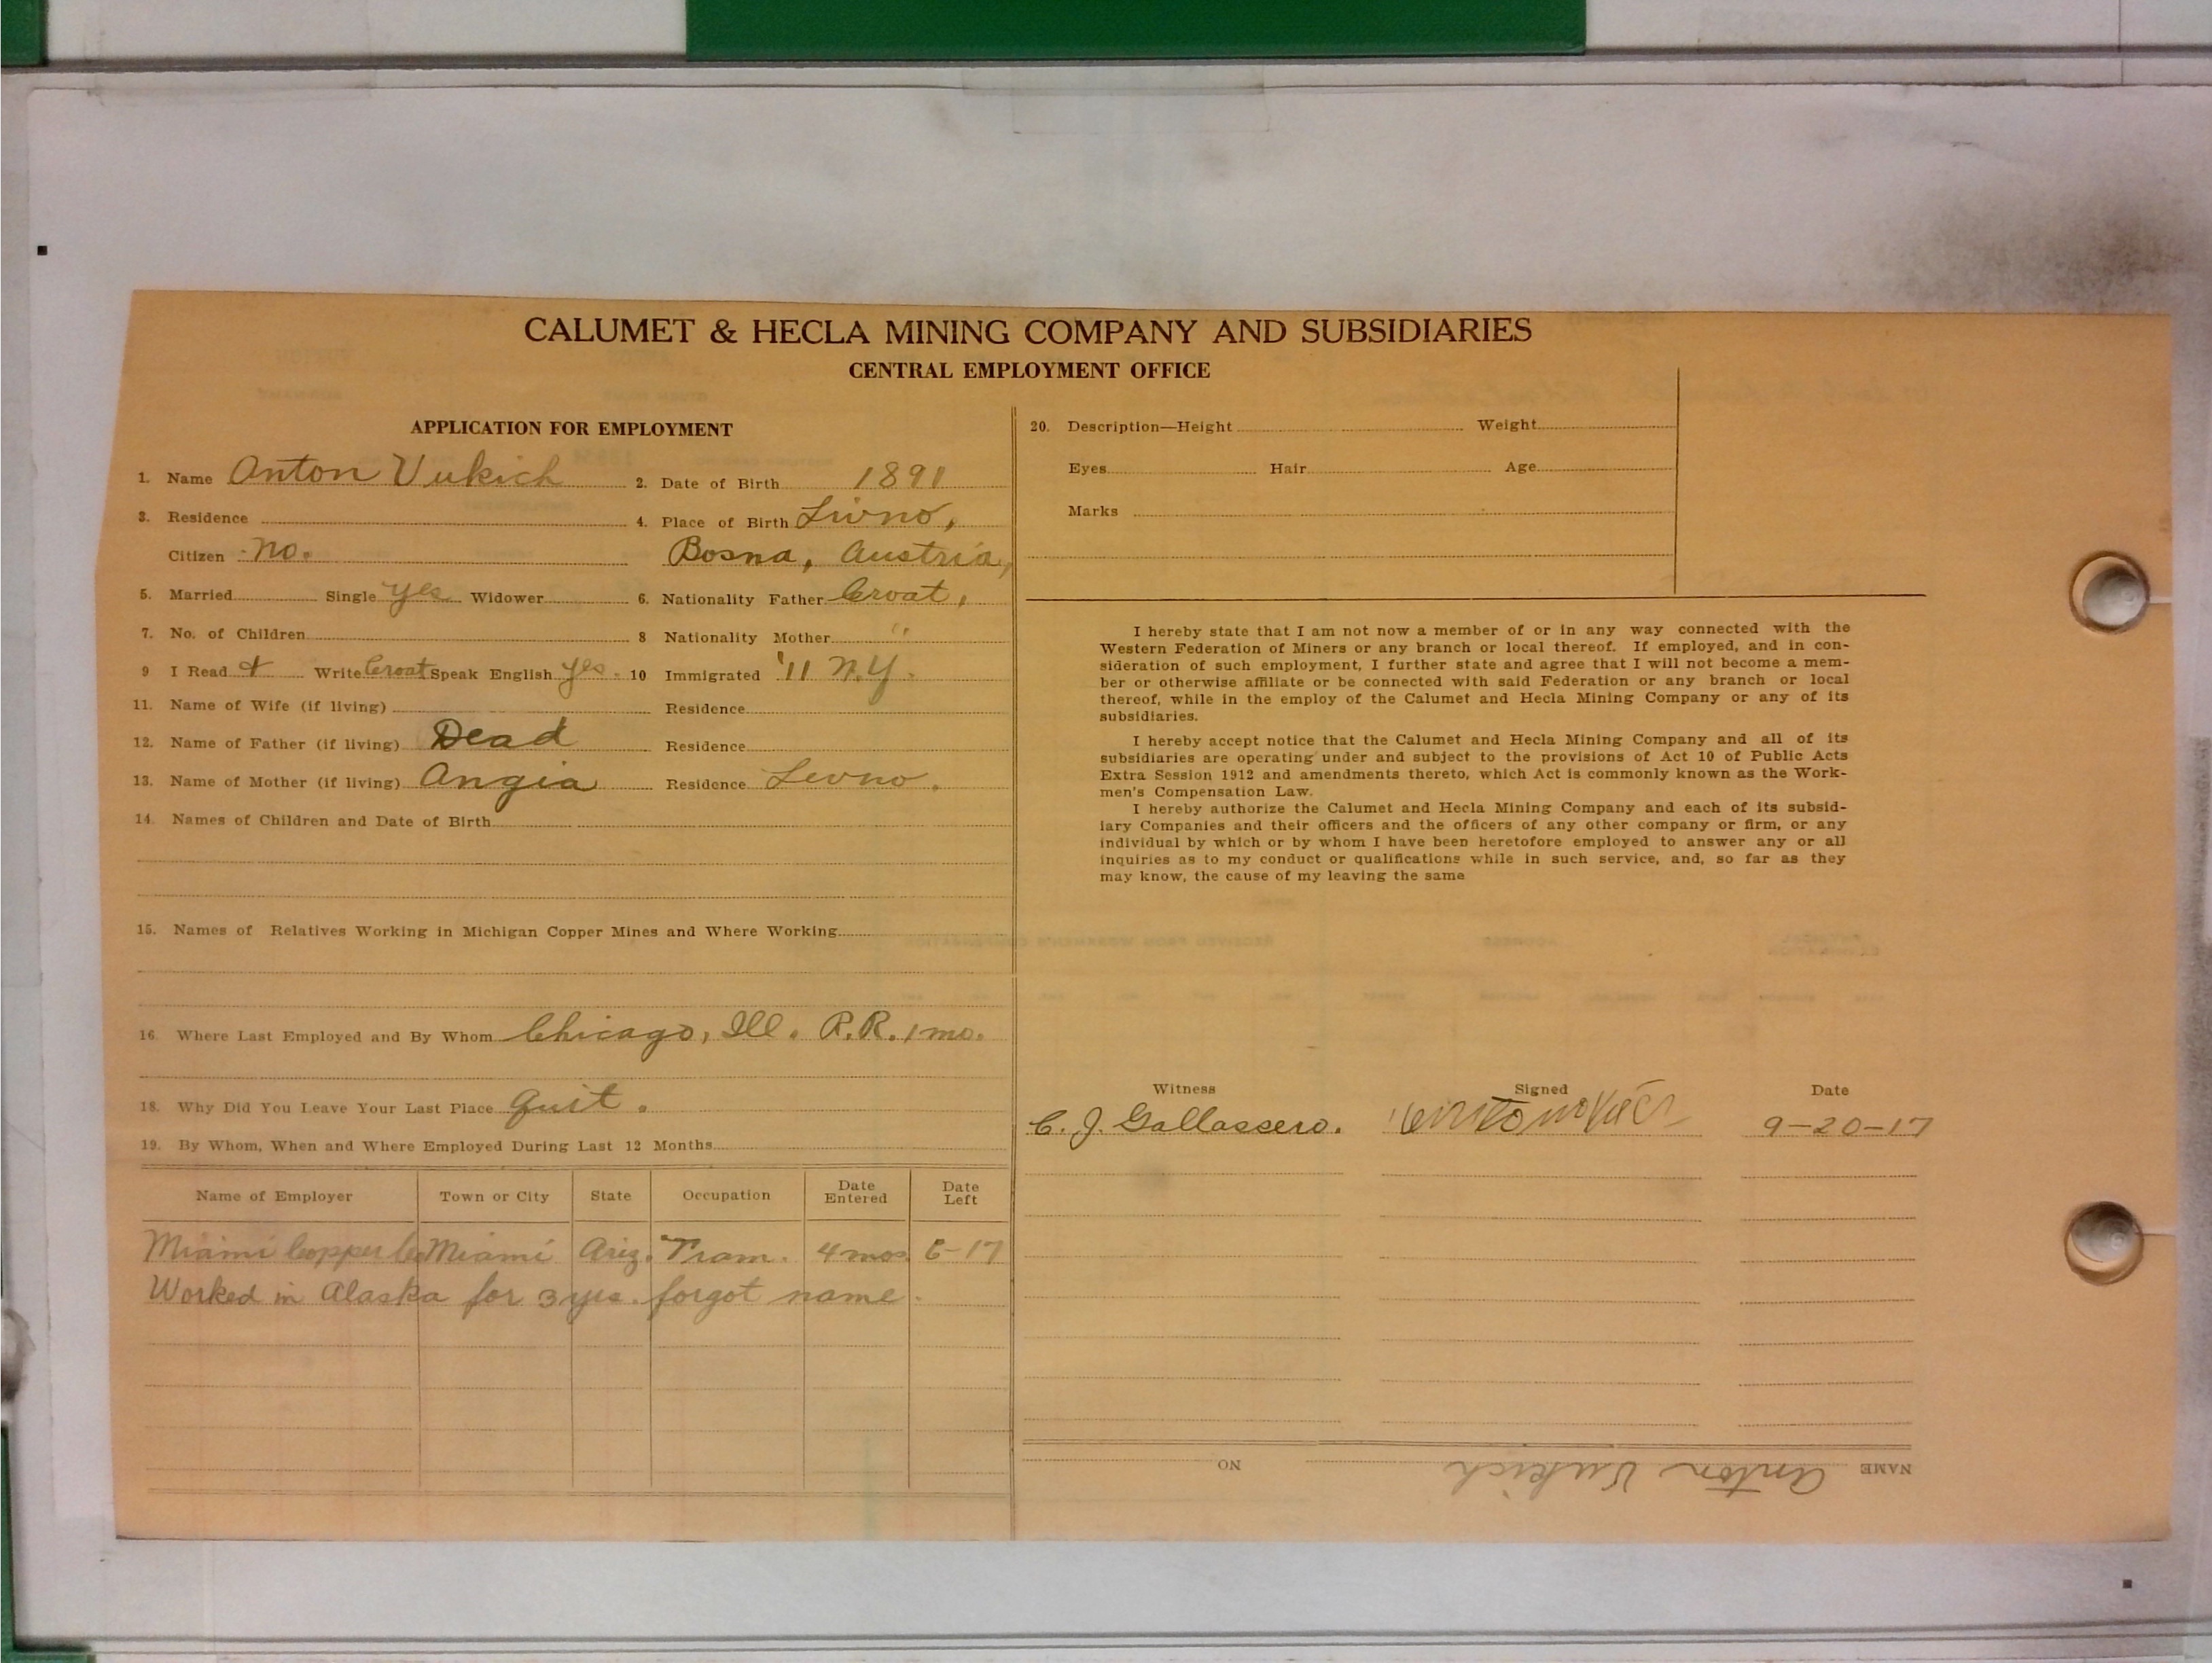 CALUMET & HECLA MINING COMPANY AND SUBSIDIARIES
CENTRAL EMPLOYMENT OFFICE
APPLICATION FOR EMPLOYMENT
1. Name Anton Vukich 2. Date of Birth 1891
3. Residence 4. Place of Birth Livno,
Citizen no. Bosna, Austria,
5. Married Single yes Widower 6. Nationality Father Croat,
7. No. of Children 8 Nationality Mother "
9 I Read & Write Croat Speak English yes. 10 Immigrated '11 N.Y.
11. Name of Wife (if living) Residence
12. Name of Father (if living) Dead Residence
13. Name of Mother (if living) Angia Residence Levno.
14. Names of Children and Date of Birth
15. Names of Relatives Working in Michigan Copper Mines and Where Working
16. Where Last Employed and By Whom Chicago, Ill. R.R. 1 mo.
18. Why Did You Leave Your Last Place Quit.
19. By Whom, When and Where Employed During Last 12 Months
Name of Employer Town or City State Occupation Date Entered Date Left
Miami Copper Co Miami Ariz. Tram. 4 mos. 6-17
Worked in Alaska for 3 yrs. forgot name.
20. Description—Height Weight
Eyes Hair Age
Marks
I hereby state that I am not now a member of or in any way connected with the
Western Federation of Miners or any branch or local thereof. If employed, and in con-
sideration of such employment, I further state and agree that I will not become a mem-
ber or otherwise affiliate or be connected with said Federation or any branch or local
thereof, while in the employ of the Calumet and Hecla Mining Company or any of its
subsidiaries.
I hereby accept notice that the Calumet and Hecla Mining Company and all of its
subsidiaries are operating under and subject to the provisions of Act 10 of Public Acts
Extra Session 1912 and amendments thereto, which Act is commonly known as the Work-
men's Compensation Law.
I hereby authorize the Calumet and Hecla Mining Company and each of its subsid-
iary Companies and their officers and the officers of any other company or firm, or any
individual by which or by whom I have been heretofore employed to answer any or all
inquiries as to my conduct or qualifications while in such service, and, so far as they
may know, the cause of my leaving the same
Witness Signed Date
C. J. Gallassero. 9-20-17
NAME Anton Vukich NO